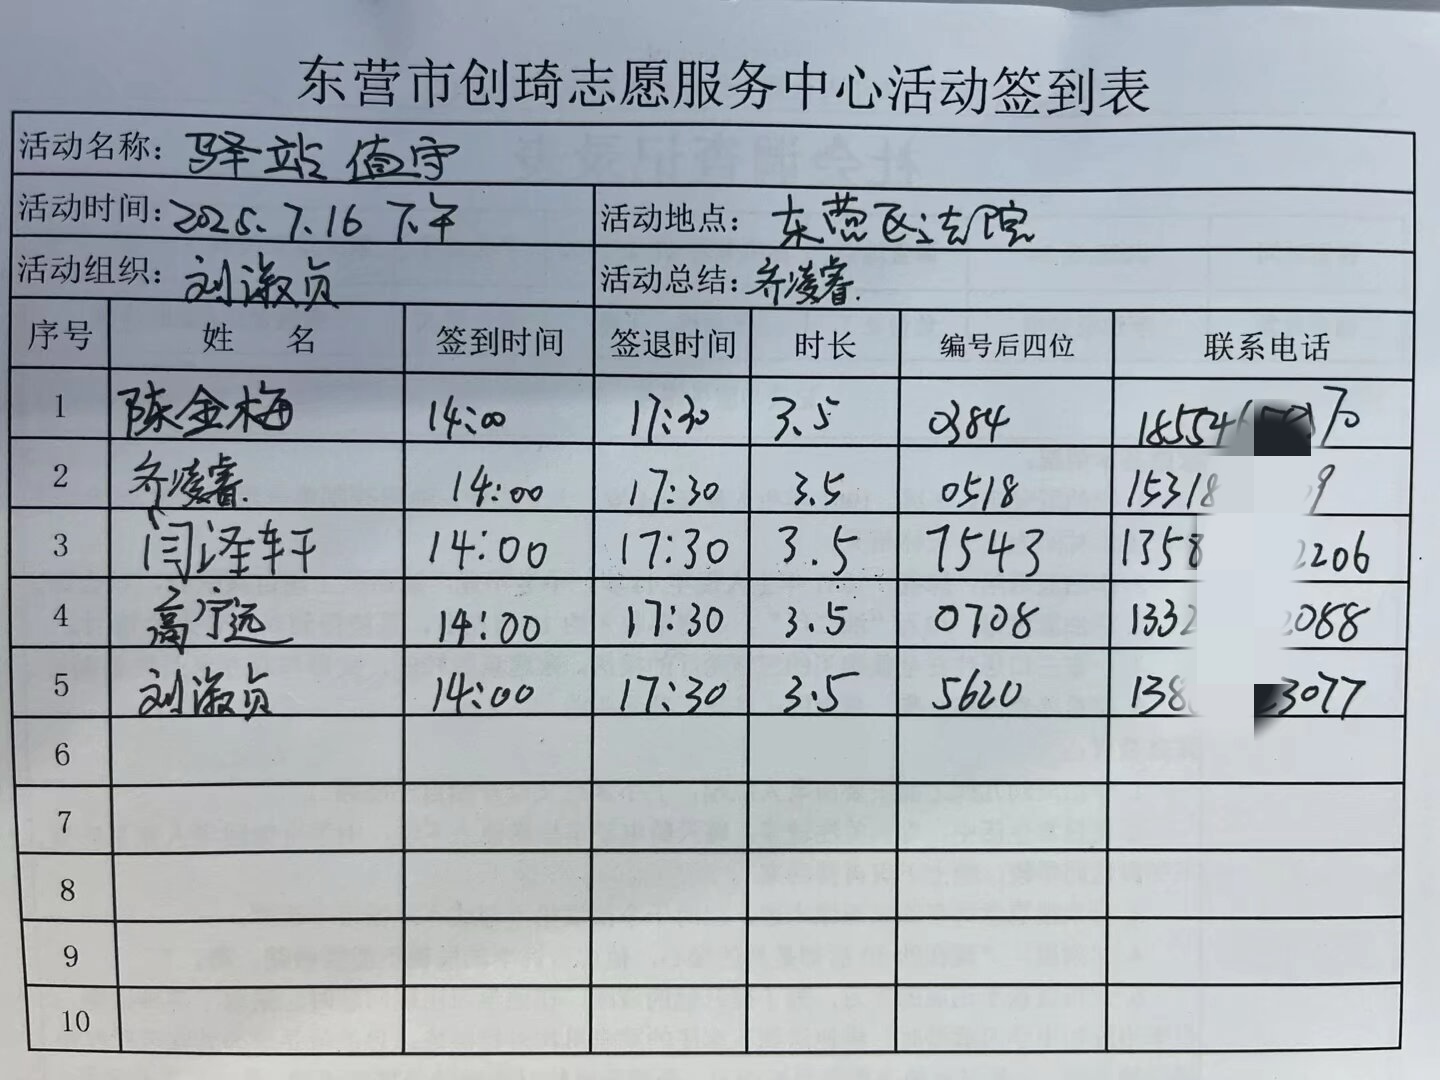 东营市创琦志愿服务中心活动签到表
活动名称：驿站值守
活动时间：2025.7.16 下午 活动地点：东营区法院
活动组织：刘淑贞 活动总结：齐凌睿.
序号 姓 名 签到时间 签退时间 时长 编号后四位 联系电话
1 陈金梅 14:00 17:30 3.5 0384 18554 70
2 齐凌睿. 14:00 17:30 3.5 0518 15318 9
3 闫泽轩 14:00 17:30 3.5 7543 1358 2206
4 高宁远 14:00 17:30 3.5 0708 1332 2088
5 刘淑贞 14:00 17:30 3.5 5620 138 3077
6
7
8
9
10